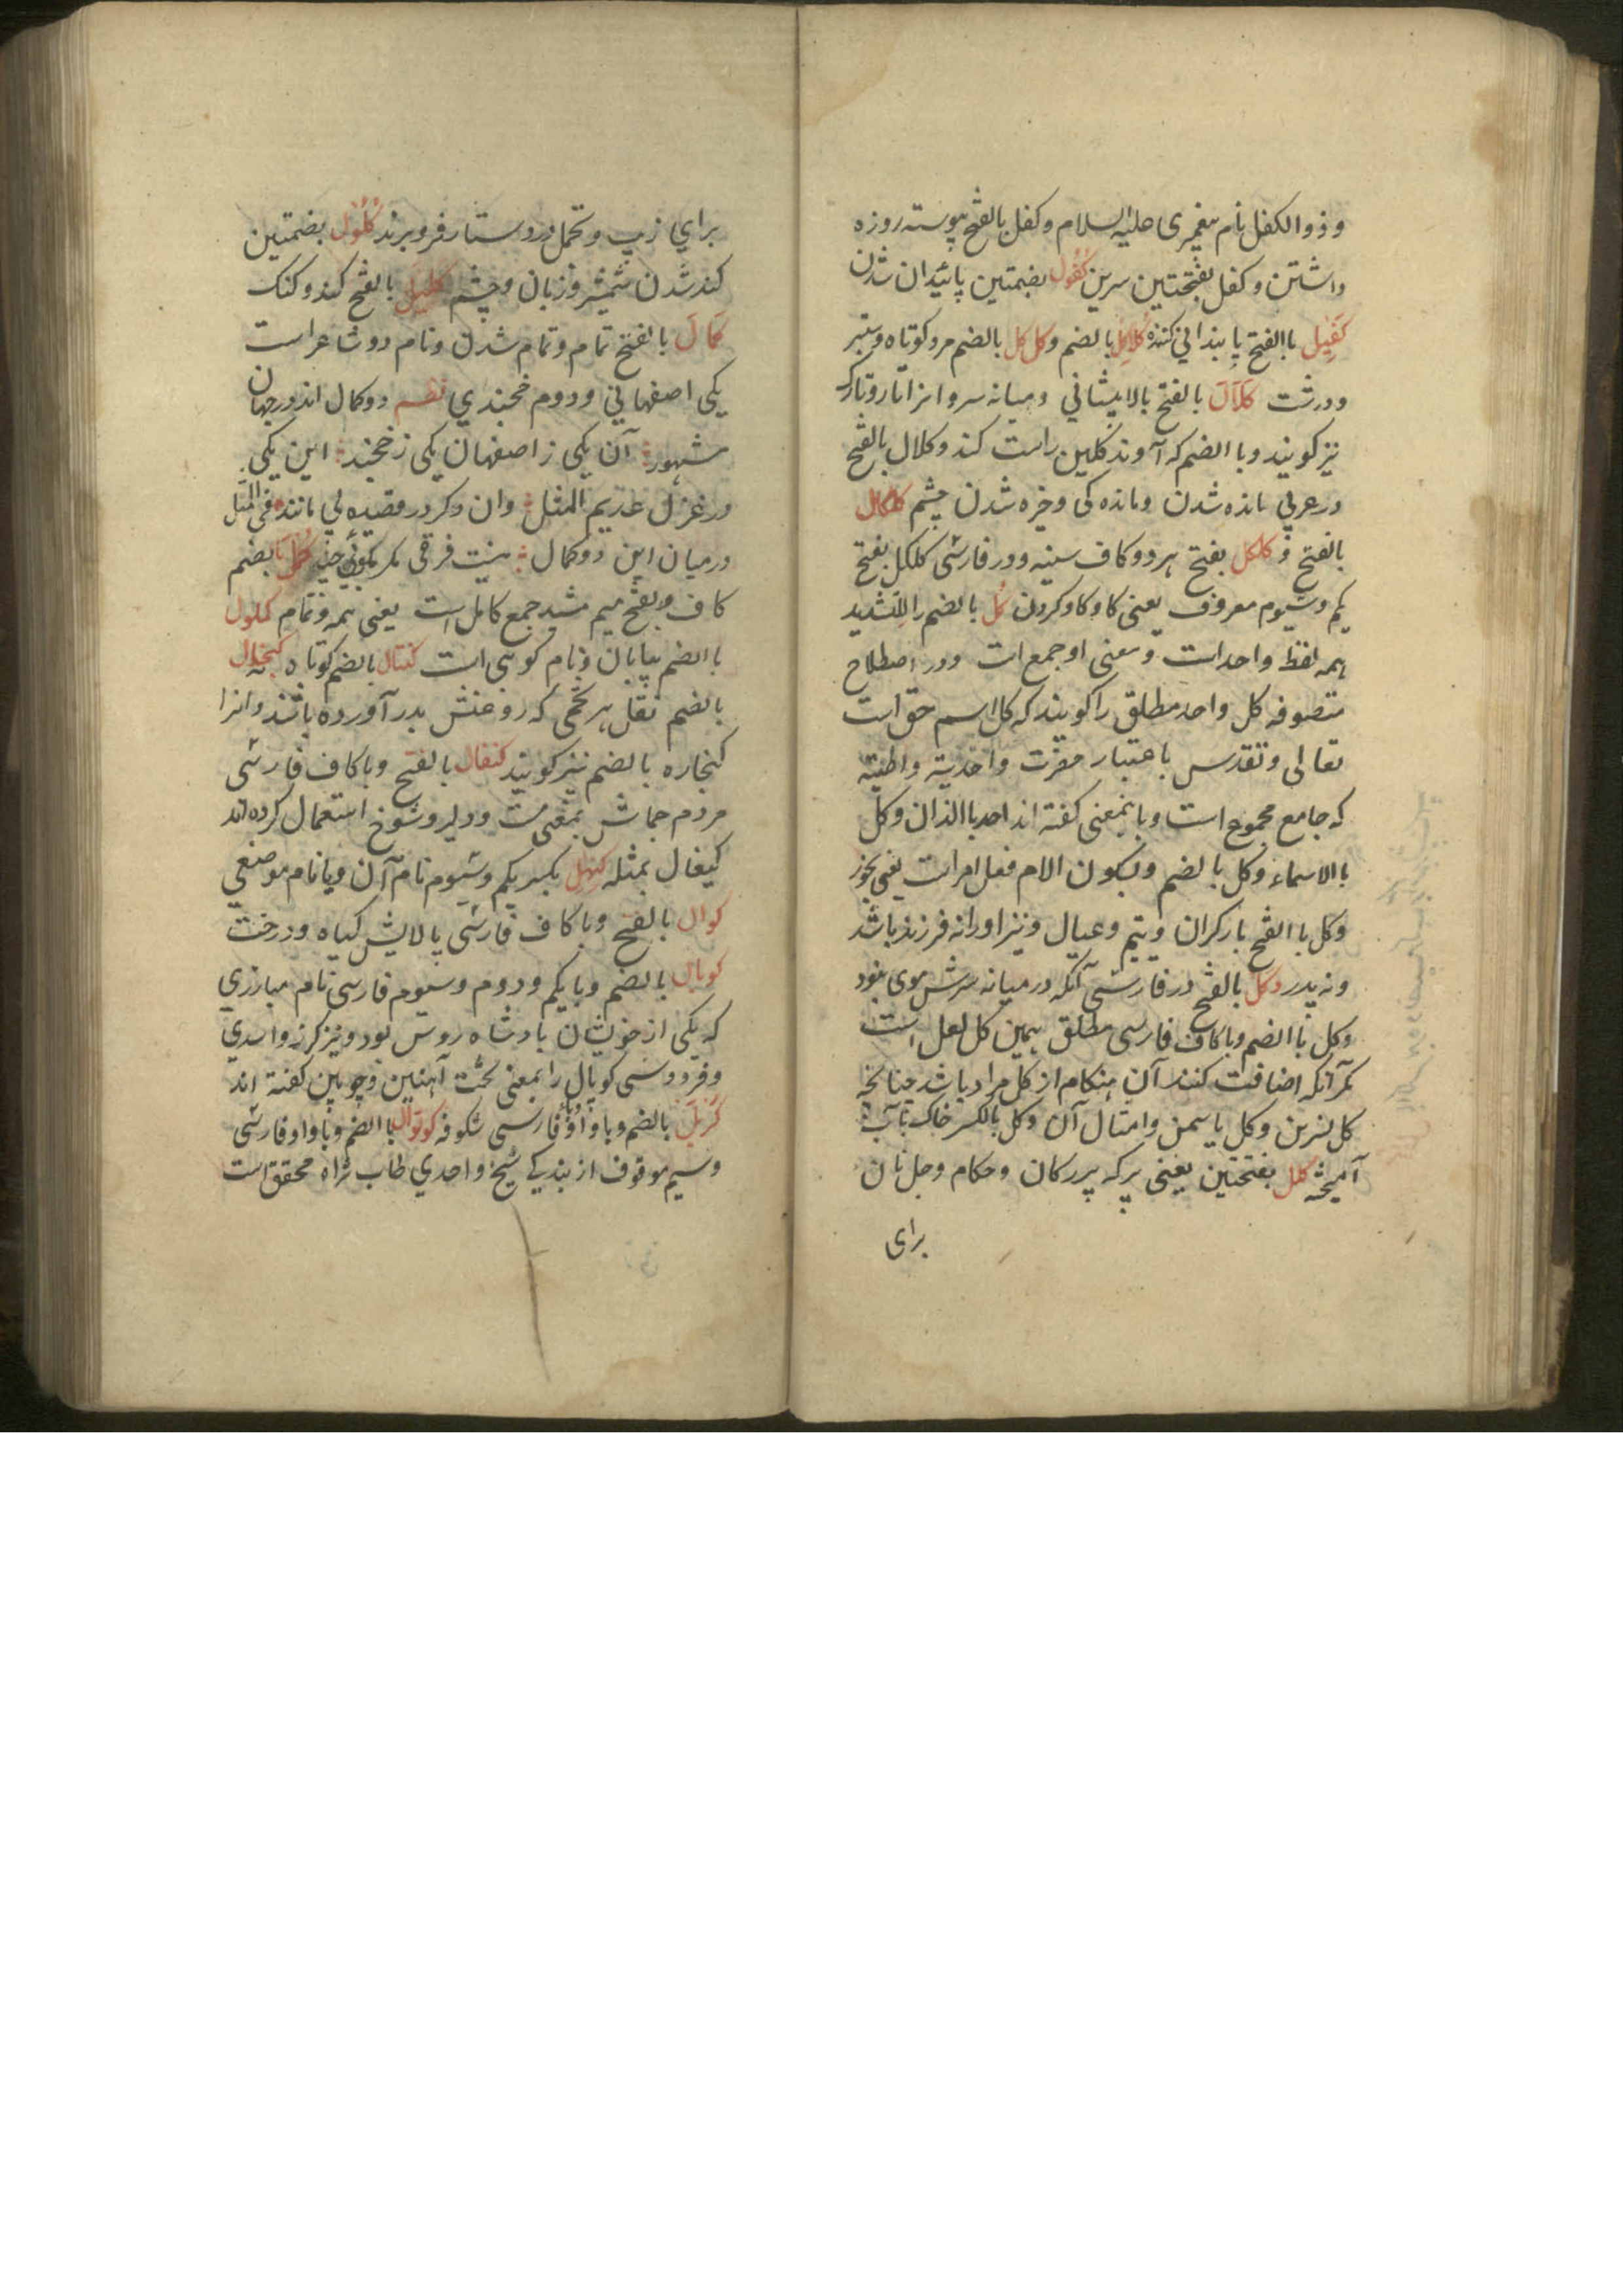 و ذو الکفل نام پیغمبری علیه السلام و کفل بالفتح پیوسته روزه
داشتن و کفل بفتحتین سرین کُفُول بضمتین پائیدان شدن
کَفِیل باالفتح پایندانی کننده کلاکل بالضم و کل کل بالضم مرد کوتاه و ستبر
و درشت کَلَال بالفتح بالا پیشانی و میانه سر و انرا تار و تارک
نیز کویند و با الضم که آوند کلین راست کند و کلال بالفتح
در عربی مانده شدن و مانده کی و خیره شدن چشم کلکال
بالفتح و کلکل بفتح هر دو کاف سینه و در فارسی کلکل بفتح
یکم و سیوم معروف یعنی کاو کاو کردن کُل بالضم را التشدید
همه لفظ واحد است و معنی او جمع است و در اصطلاح
متصوفه کل واحد مطلق را کویند که کل اسم حق است
تعالی و تقدس باعتبار حضرت واحدیة والهیة
که جامع مجموع است و باینمعنی کفته اند احد باالذات و کل
باالاسماء و کل بالضم و بسکون الام فعل امر است یعنی بخور
و کل باالفتح بار کران و یتیم و عیال و نیز او را نه فرزند باشد
و نه پدر و کل بالفتح در فارسی آنکه در میانه سرش موی نبود
و کل باالضم و با کاف فارسی مطلق همین کل لعل است
مکر آنکه اضافت کنند آن هنکام از کل مراد باشد چنانچه
کل نسرین و کل یاسمن و امثال آن و کل بالکسر خاک با آب
آمیخته کلل بفتحتین یعنی پر که پررکان و حکام و جل نان
برای
برای زیب و تجمل در دستار فرو برند کُلُول بضمتین
کند شدن شمشیر و زبان و چشم کلیل بالفتح کند و کنک
کَمَال بالفتح تمام و تمام شدن و نام دو شاعر است
یکی اصفهانی و دوم خجندی نظم دو کمال اند در جهان
مشهور آن یکی ز اصفهان یکی ز خجند این یکی
در غزل عدیم المثل وان دکر در قصیده بی مانند فی المثل
در میان این دو کمال نیست فرقی مکر بموئی چند کُمَّل بضم
کاف و بفتح میم مشدد جمع کامل است یعنی همه و تمام کملول
باالضم بیابان و نام کوهی است کنتال بالضم کوتاه کنجال
بالضم ثقل هر تخمی که روغنش بدر آورده باشند و انرا
کنجاره بالضم نیز کویند کنفال بالفتح و با کاف فارسی
مردم جماش بمعنی مست و دلیر و شوخ استعمال کرده اند
کیغال بمثله کنهل بکسر یکم و سیوم نام آن و یا نام موضعی
کوال بالفتح و با کاف فارسی بالایش کیاه و درخت
کوپال بالضم و با یکم و دوم و سیوم فارسی نام مبارزی
که یکی از خویشان بادشاه روس بود و نیز کرز و اسدی
و فردوسی کوپال را بمعنی تخت آهنین و چوبین کفته اند
بالضم و با واو فارسی شکوفه کوتوال باالضم و با واو فارسی
و سیم موقوف از بندکی شیخ واحدی طاب ثراه محقق است